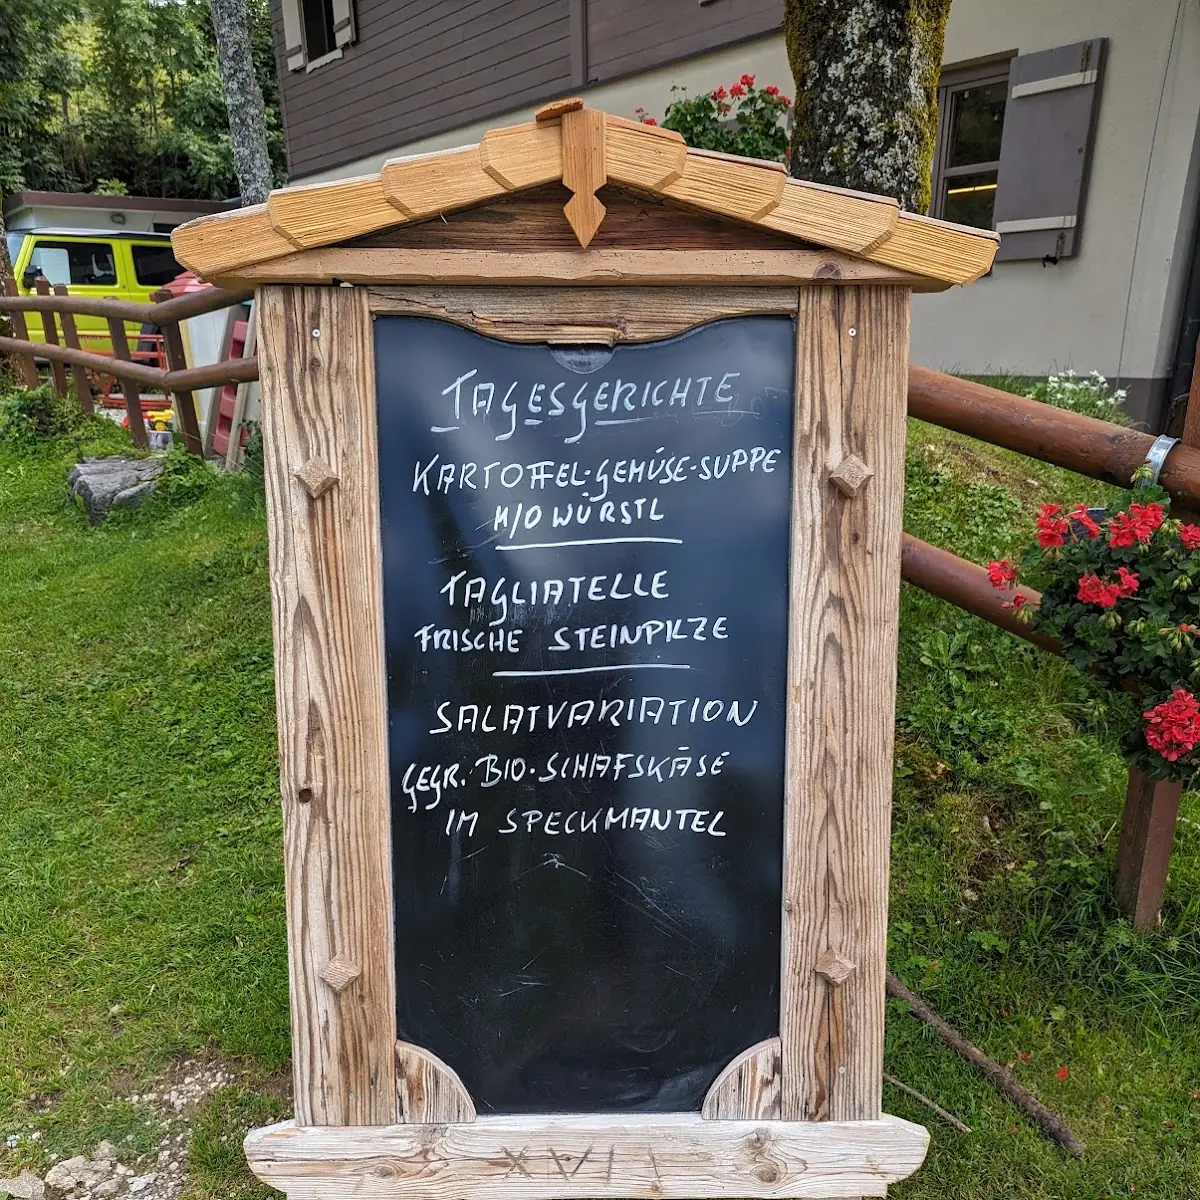 TAGESGERICHTE
KARTOFFEL-GEMÜSE-SUPPE
M/O WÜRSTL
TAGLIATELLE
FRISCHE STEINPILZE
SALATVARIATION
GEGR. BIO-SCHAFSKÄSE
IM SPECKMANTEL